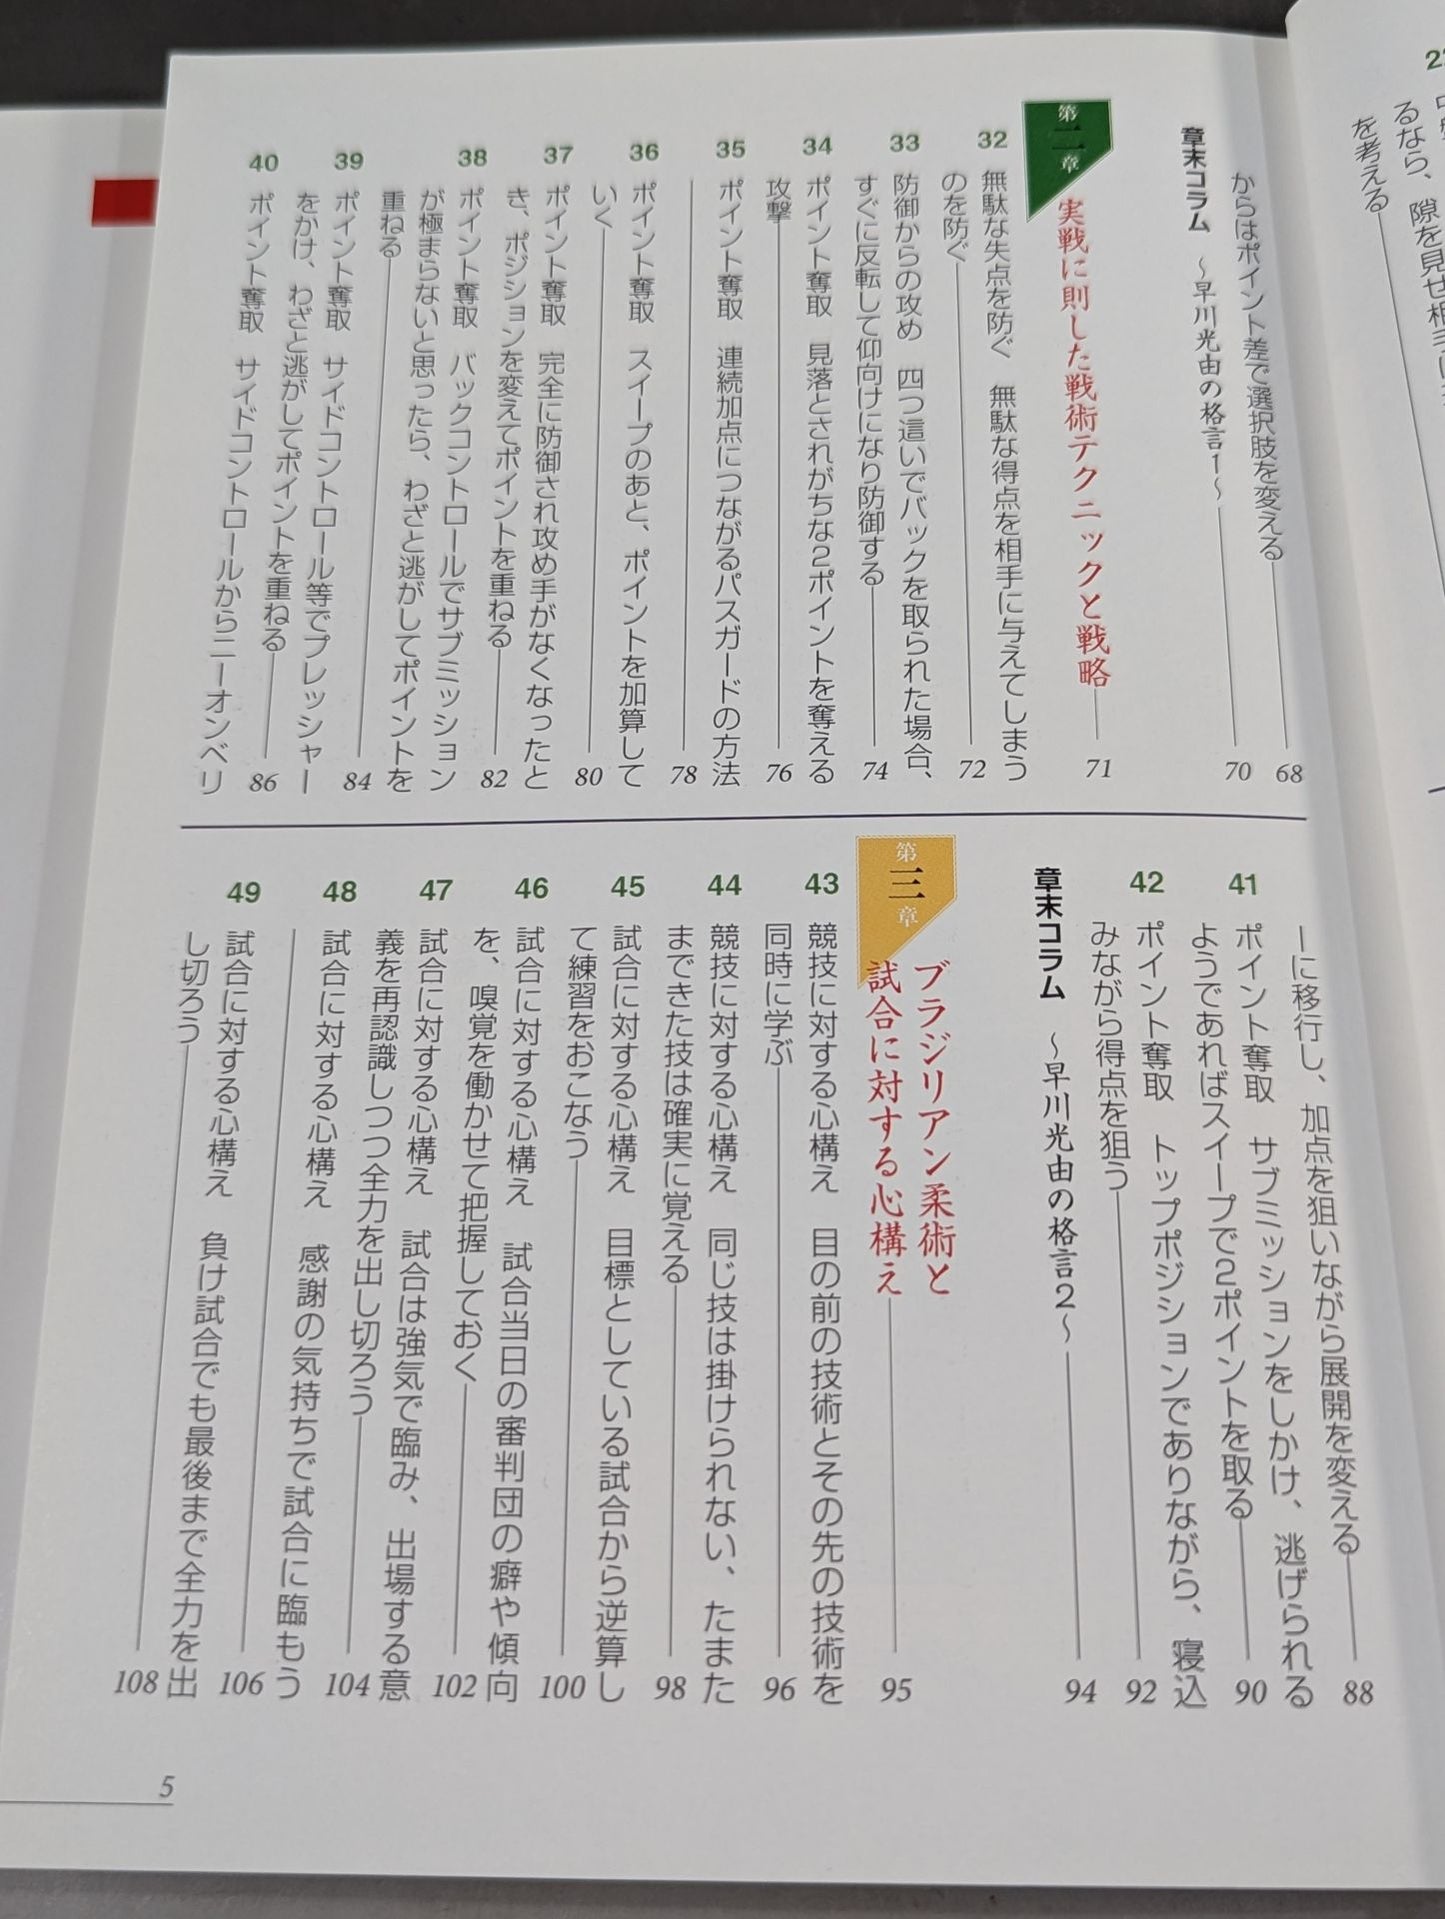 を考える
からはポイント差で選択肢を変える 68
章末コラム ～早川光由の格言1～ 70
第二章 実戦に則した戦術テクニックと戦略 71
32 無駄な失点を防ぐ 無駄な得点を相手に与えてしまう
のを防ぐ 72
33 防御からの攻め 四つ這いでバックを取られた場合、
すぐに反転して仰向けになり防御する 74
34 ポイント奪取 見落とされがちな2ポイントを奪える
攻撃 76
35 ポイント奪取 連続加点につながるパスガードの方法
78
36 ポイント奪取 スイープのあと、ポイントを加算して
いく 80
37 ポイント奪取 完全に防御され攻め手がなくなったと
き、ポジションを変えてポイントを重ねる 82
38 ポイント奪取 バックコントロールでサブミッション
が極まらないと思ったら、わざと逃がしてポイントを
重ねる 84
39 ポイント奪取 サイドコントロール等でプレッシャー
をかけ、わざと逃がしてポイントを重ねる 86
40 ポイント奪取 サイドコントロールからニーオンベリ
ーに移行し、加点を狙いながら展開を変える 88
41 ポイント奪取 サブミッションをしかけ、逃げられる
ようであればスイープで2ポイントを取る 90
42 ポイント奪取 トップポジションでありながら、寝込
みながら得点を狙う 92
章末コラム ～早川光由の格言2～ 94
第三章 ブラジリアン柔術と
試合に対する心構え 95
43 競技に対する心構え 目の前の技術とその先の技術を
同時に学ぶ 96
44 競技に対する心構え 同じ技は掛けられない、たまた
までできた技は確実に覚える 98
45 試合に対する心構え 目標としている試合から逆算し
て練習をおこなう 100
46 試合に対する心構え 試合当日の審判団の癖や傾向
を、嗅覚を働かせて把握しておく 102
47 試合に対する心構え 試合は強気で臨み、出場する意
義を再認識しつつ全力を出し切ろう 104
48 試合に対する心構え 感謝の気持ちで試合に臨もう
106
49 試合に対する心構え 負け試合でも最後まで全力を出
し切ろう 108
5